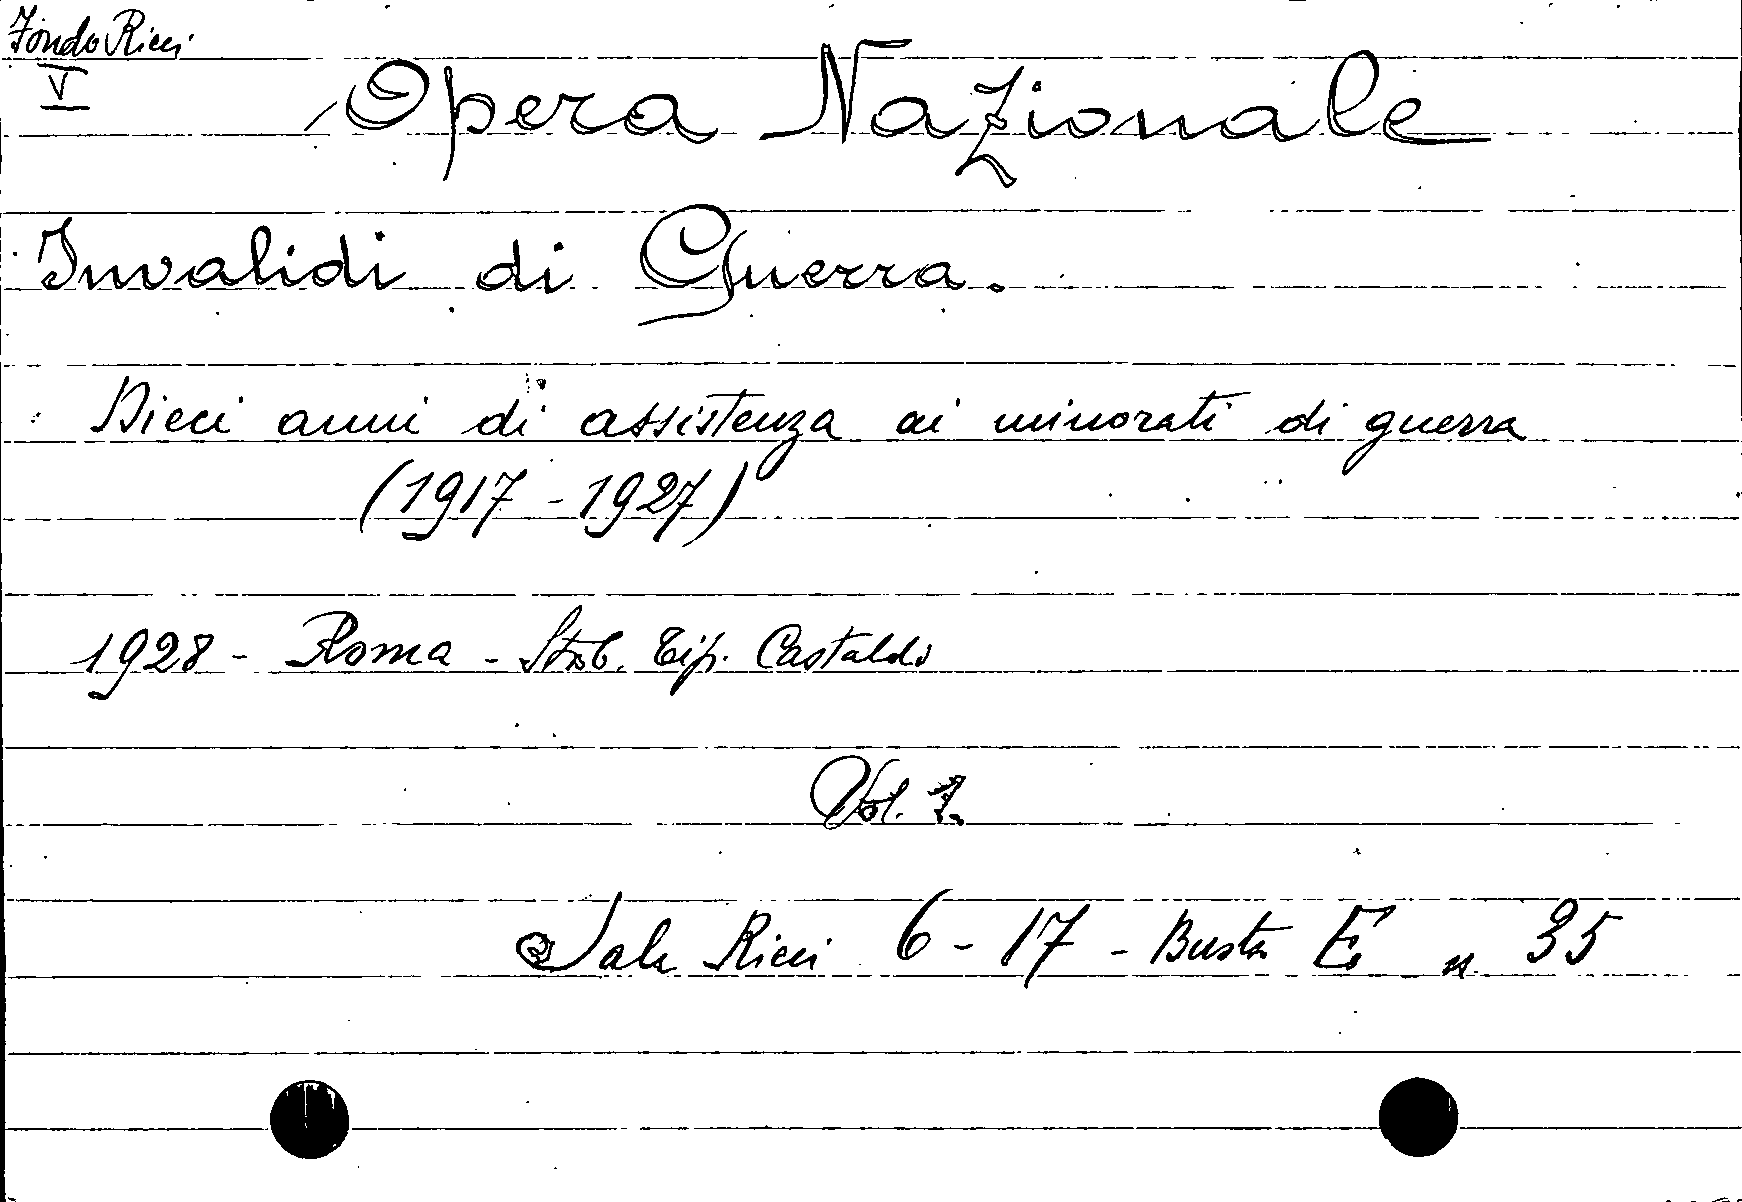 Fondo Ricci
V
Opera Nazionale
Invalidi di Guerra.
Dieci anni di assistenza ai minorati di guerra
(1917 - 1927)
1928 - Roma - Stab. Tip. Castaldi
Vol. 1.
Sala Ricci 6 - 17 - Busta E n 35